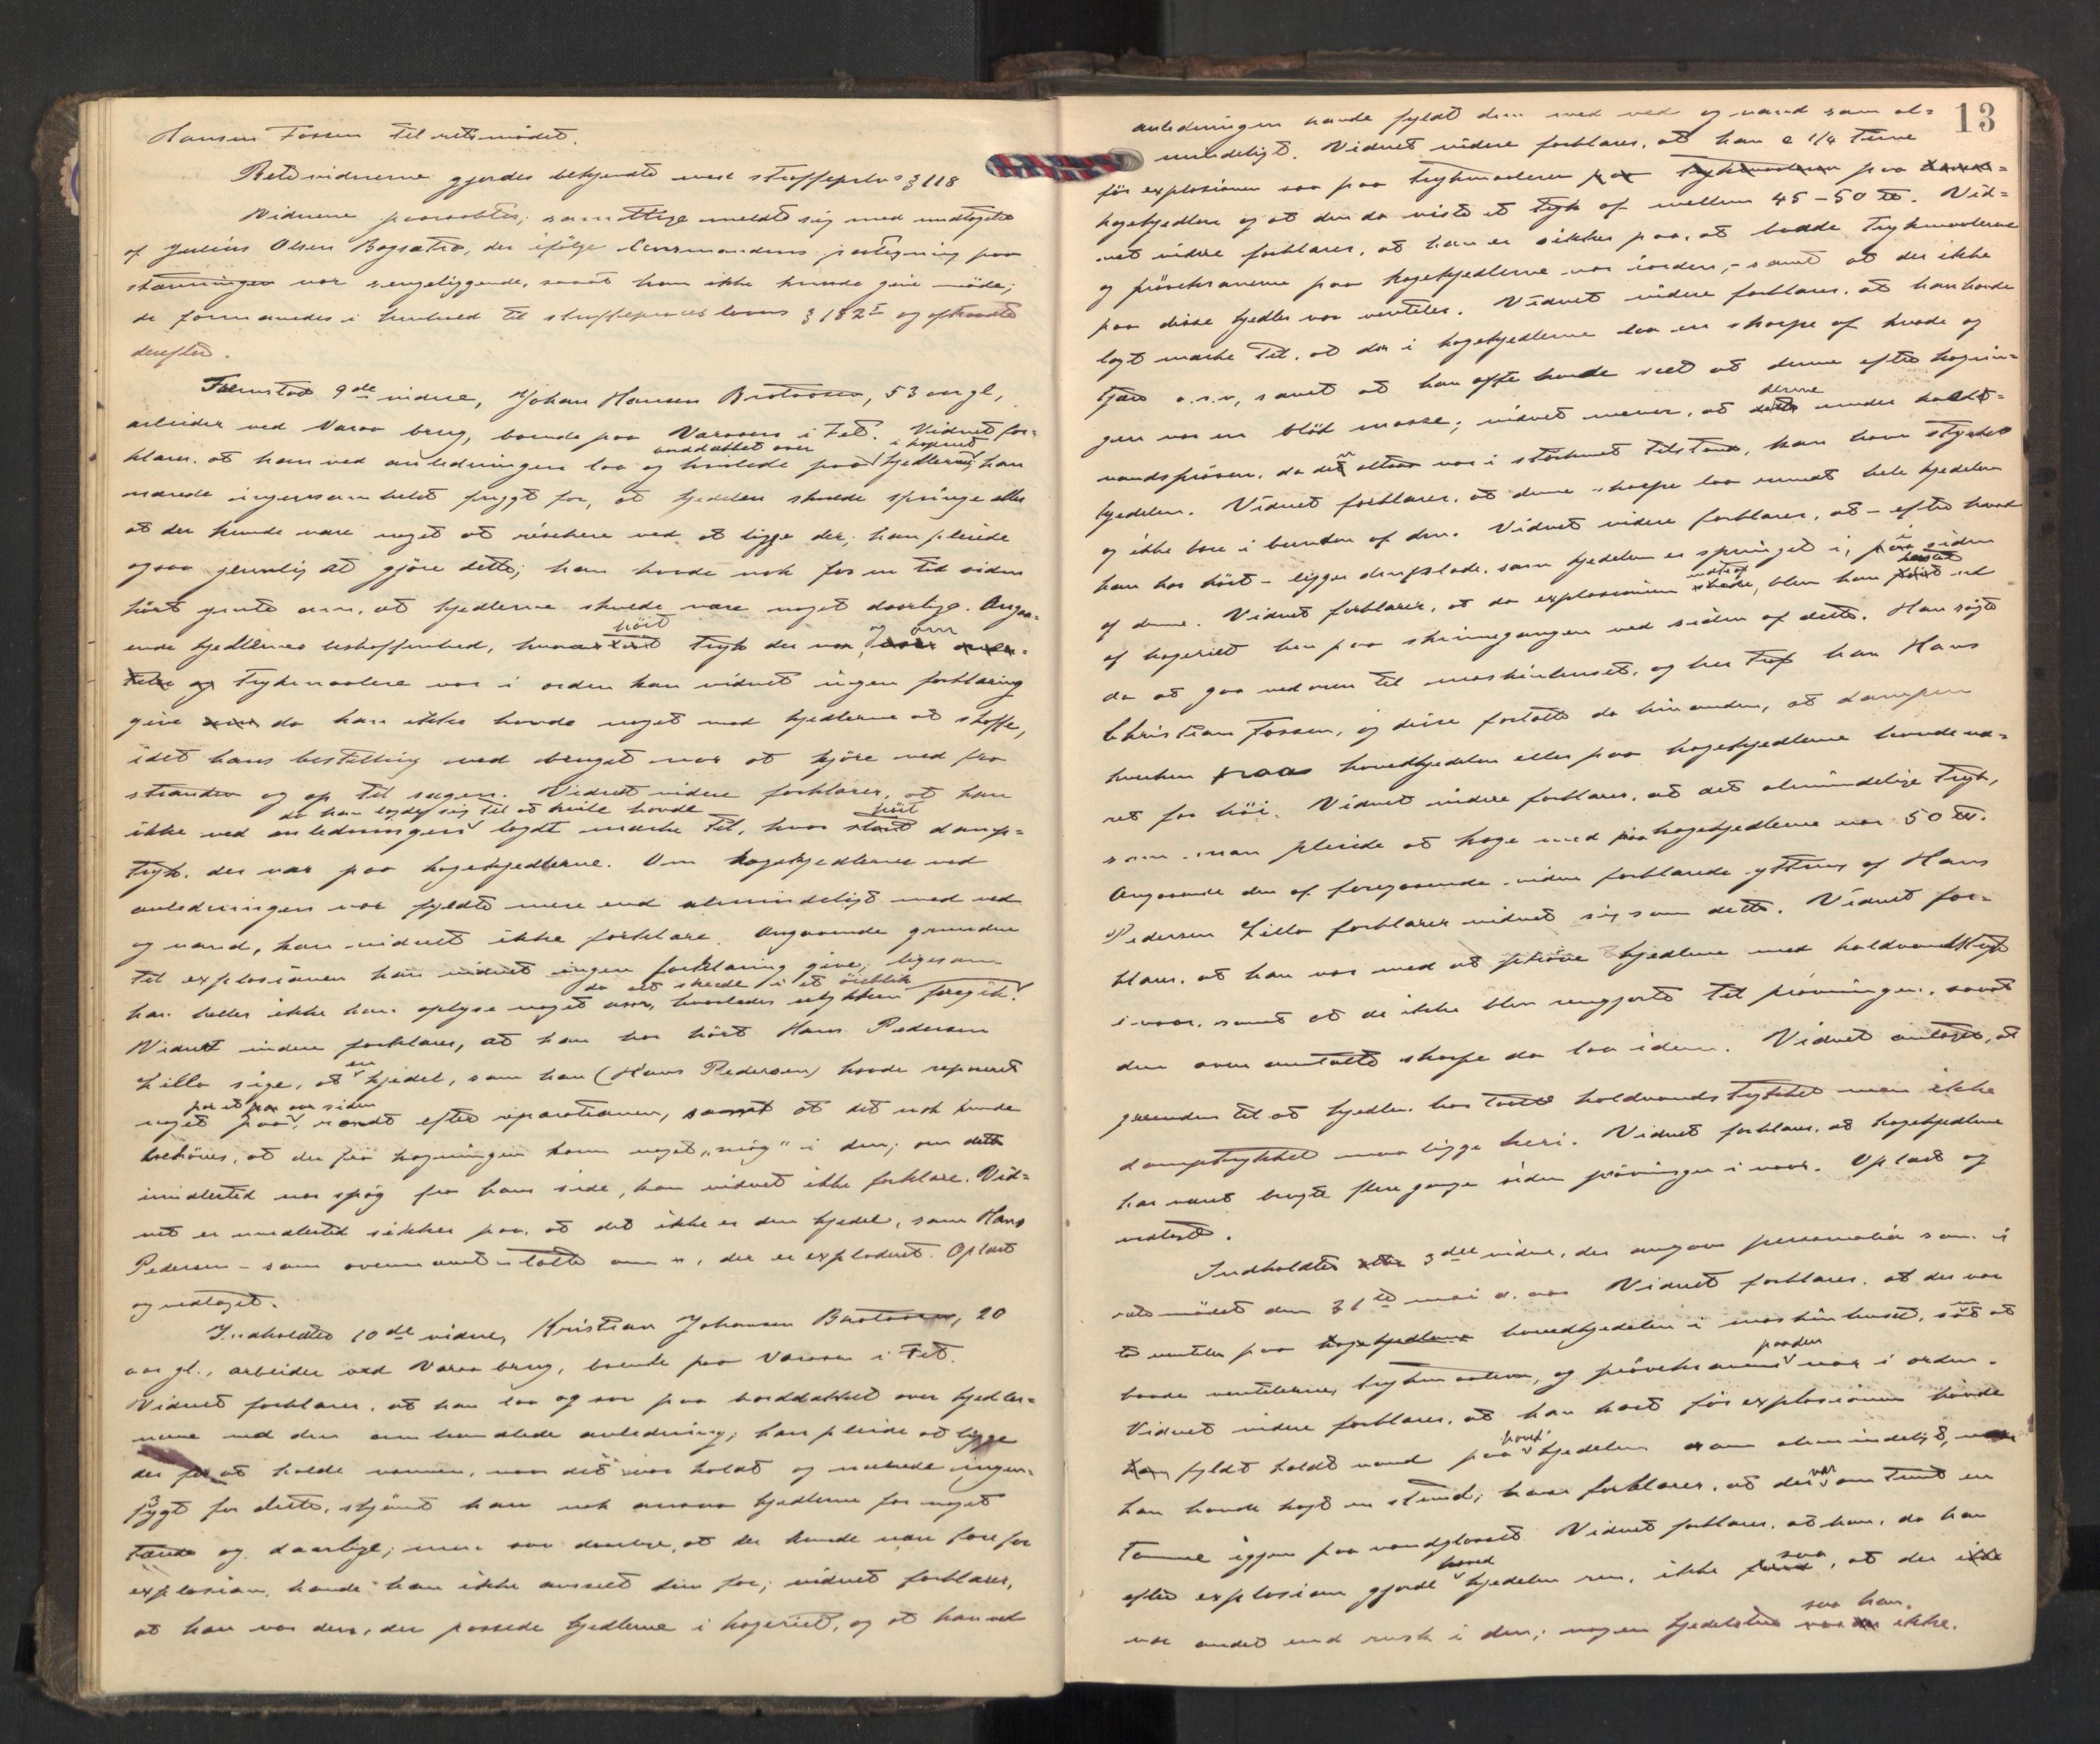 Hansen Fossen til retsmödet.
Retsvidnerne gjordes bekjendte med straffeprlvs § 118
Vidnerne paaraabtes; samtlige meldte sig med undtagelse
af Julius Olsen Bogsætra, der ifølge lensmandens paategning paa
stævningen var sengeliggende, saaat han ikke kunde give møde;
de formanedes i henhold til straffeproceslovens § 182 I og aftraadte
derefter.
Fremstod 9de vidne, Johan Hansen Brataasen, 53 aar gl,
arbeider ved Varaa brug, boende paa Varaaen i Fet. Vidnet for=
klarer. at han ved anledningen laa og hvilede paa borddækket over kjedlerne i kogeriet; han
nærede ingensomhelst frygt for, at kjedelen skulde springe eller
at der kunde være noget at risikere ved at ligge der; han pleiede
ogsaa jevnlig at gjöre dette; han havde nok for en tid siden
hört ymte om, at kjedlerne skulde være noget daarlige. Angaa=
ende kjedlernes beskaffenhed, hvor höit tryk der var, og om
trykmaalere var i orden kan vidnet ingen forklaring
give da han ikke havde noget med kjedlerne at skaffe,
idet hans bestilling ved bruget var at kjöre ved fra
stranden og op til sagen. Vidnet videre forklarer, at han
ikke ved anledningen da han lagde sig til at hvile havde lagt mærke til, hvor höit damp=
tryk. der var paa kogekjedlerne. Om kogekjedlerne ved
anledningen var fyldte mere end almindeligt med ved
og vand, kan vidnet ikke forklare. Angaaende grunden
til explosionen kan vidnet ingen forklaring give, ligesom
han heller ikke kan oplyse noget om, hvorledes ulykken foregik, da alt skede i et öieblik.
Vidnet videre forklarer, at han har hört Hans Pedersen
Lilla sige, at en kjedel, som han (Hans Pedersen) havde repareret
noget paa for et par aar siden, randt efter reparationen, samt at det nok kunde
behöves, at der fra kogningen kom noget „møg" i den; om dette
imidlertid var spøg fra hans side, kan vidnet ikke forklare. Vid=
net er imidlertid sikker paa. at det ikke er den kjedel, som Hans
Pedersen - som ovennævnt - talte om, der er exploderet. Oplæst
og vedtaget.
Indkaldtes 10de vidne, Kristian Johansen Brataasen, 20
aar gl., arbeider ved Varaa brug, boende paa Varaaen i Fet.
Vidnet forklarer. at han laa og sov paa borddækket over kjedler=
nerne ved den omhandlede anledning; han pleide at ligge
der for at holde varmen, naar det var koldt og nærede ingen
frygt for dette, skjönt han nok ansaa kjedlerne for noget
tærede og daarlige; men saa daarlige, at der kunde være fare for
explosion, havde han ikke anseet dem for; vidnet forklarer,
at han var den, der passede kjedlerne i kogeriet, og at han ved
13
anledningen havde fyldt dem med ved og vand som al=
mindeligt. Vidnet videre forklarer. at han c 1/4 time
för explosionen saa paa trykmaaleren paa
kogekjedlen og at den da viste et tryk af mellem 45-50 ℔. Vid=
net videre forklarer, at han er sikker paa, at baade trykmaalerne
og prövekranerne paa kogekjedlerne var iorden, - samt at der ikke
paa disse kjedler var ventiler. Vidnet videre forklarer. at han havde
lagt mærke til. at der i kogekjedlerne laa en skorpe af kvade og
tjære o.s.v, samt at han ofte havde seet at denne efter kognin=
gen var en blöt masse; vidnet mener, at denne under koldt=
vandspröven. da den altsaa var i störknet tilstand, kan have styrket
kjedelen. Vidnet forklarer. at denne skorpe laa rundt hele kjedelen
og ikke bare i bunden af den. Vidnet videre forklarer, at - efter hvad
han har hört - ligger den plade. som kjedelen er sprunget i, i siden
af denne. Vidnet forklarer, at da explosionen indtraf, blev han kastet ud
af kogeriet hen paa skinnegangen ved siden af dette. Han sögte
da at gaa nedover til maskinhuset, og her traf han Hans
Christian Fossen, og disse fortalte da hinanden, at dampen
hverken paa hovedkjedelen eller paa kogekjedlerne havde væ=
ret for höi. Vidnet videre forklarer. at det almindelige tryk,
som man pleiede at koge med paa kogekjedlerne var 50 ℔.
Angaaende den af foregaaende vidne forklarede yttring af Hans
Pedersen Lilla forklarer vidnet sig som dette. Vidnet for=
klarer. at han var med at pröve kjedlerne med koldvandstryk
i vaar. samt at de ikke blev rengjorte til prövningen. saaat
den ovenomtalte skorpe da laa i dem. Vidnet antager, at
grunden til at kjedlen har taalt koldvandstrykket men ikke
damptrykket maa ligge heri. Vidnet forklarer. at kogekjedlerne
har været brugte flere gange siden prövningen i vaar. Oplæst og
vedtaget.
Indkaldtes 3die vidne, der angav personalia som i
retsmödet den 31te mai d. aar Vidnet forklarer. at der var
to ventiler paa hovedkjedelen i maskinhuset, samt at
baade ventilerne, trykmaaleren, og prövekranerne paa den var i orden.
Vidnet videre forklarer. at han kort för explosionen havde
fyldt koldt vand paa hovedkjedelen som almindeligt, naar
han havde kogt en stund; han forklarer. at der var omtrent en
tomme igjen paa vandglasset Vidnet forklarer. at han. da han
efter explosionen gjorde hovedkjedelen ren. ikke saa, at der
var andet end rusk i den; nogen kjedelsten saa han. ikke.